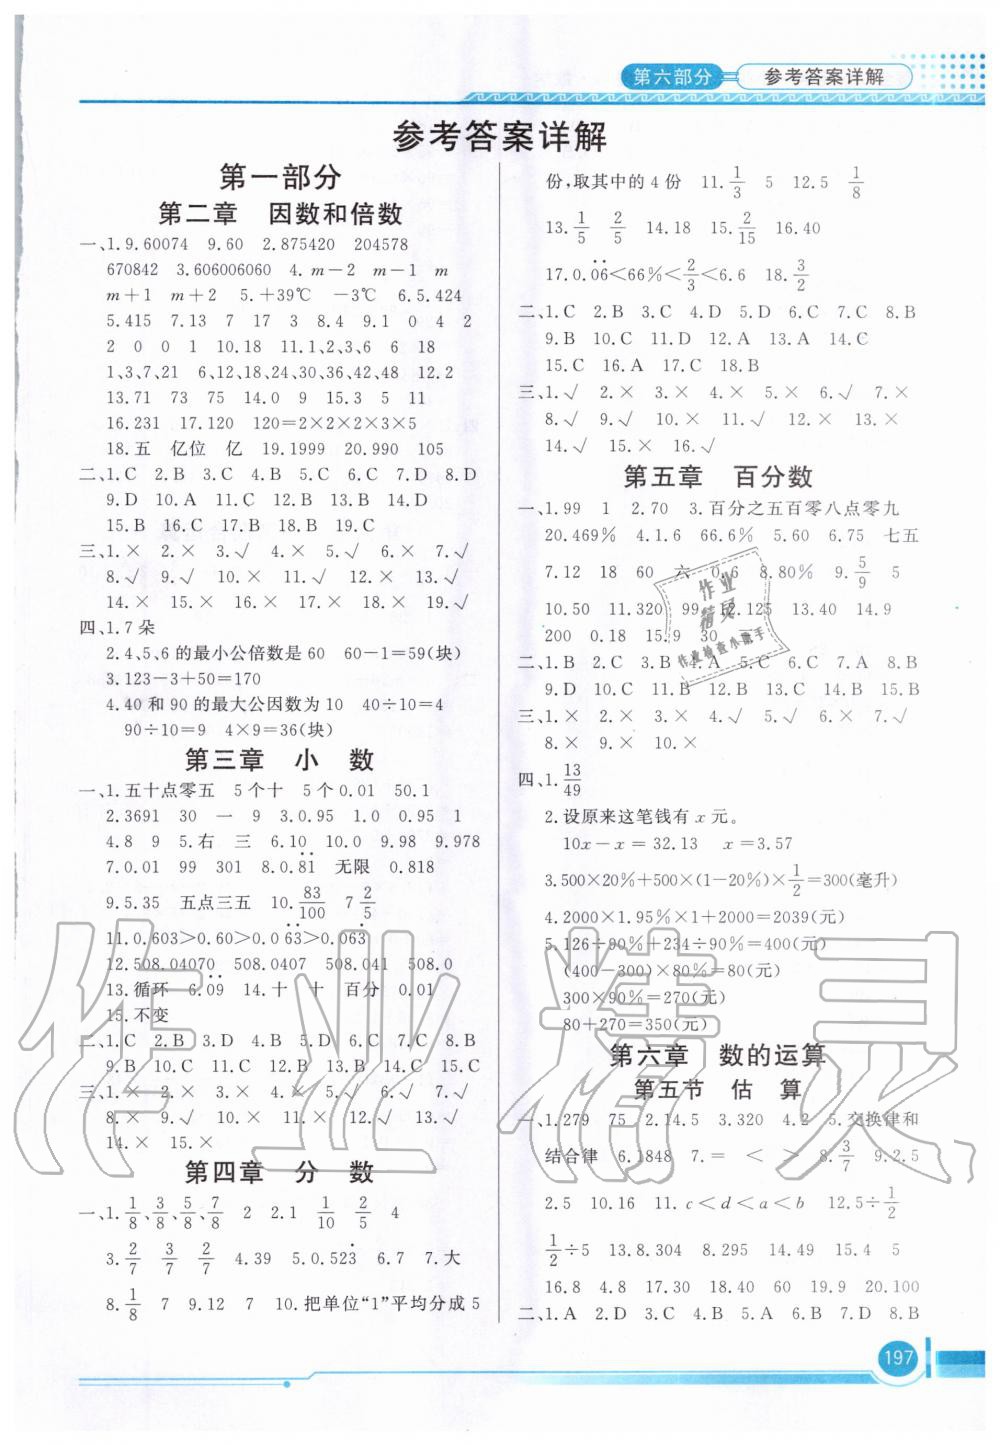 第六部分 参考答案详解
参考答案详解
第一部分
第二章 因数和倍数
一、1.9.60074 9.60 2.875420 204578
670842 3.606006060 4.m-2 m-1 m
m+1 m+2 5.+39℃ -3℃ 6.5.424
5.415 7.13 7 17 3 8.4 9.1 0 4 2
2 0 0 1 10.18 11.1、2、3、6 6 18
1、3、7、21 6、12、18、24、30、36、42、48 12.2
13.71 73 75 14.0 9 15.3 5 11
16.231 17.120 120=2×2×2×3×5
18.五 亿位 亿 19.1999 20.990 105
二、1.C 2.B 3.C 4.B 5.C 6.C 7.D 8.D
9.D 10.A 11.C 12.B 13.B 14.D
15.B 16.C 17.B 18.B 19.C
三、1.× 2.× 3.√ 4.× 5.√ 6.× 7.√
8.√ 9.√ 10.× 11.× 12.× 13.√
14.× 15.× 16.× 17.× 18.× 19.√
四、1.7 朵
2.4、5、6 的最小公倍数是 60 60-1=59(块)
3.123-3+50=170
4.40 和 90 的最大公因数为 10 40÷10=4
90÷10=9 4×9=36(块)
第三章 小 数
一、1.五十点零五 5 个十 5 个 0.01 50.1
2.3691 30 一 9 3.0.95 1.0 0.95 1
4.8 9 5.右 三 6.10 10.0 9.98 9.978
7.0.01 99 301 8.0.8̇1̇ 无限 0.818
9.5.35 五点三五 10.83/100 7 2/5
11.0.603>0.60>0.06̇3̇>0.063̇
12.508.04070 508.0407 508.041 508.0
13.循环 6.0̇9̇ 14.十 十 百分 0.01
15.不变
二、1.C 2.B 3.D 4.B 5.C 6.C 7.C 8.B
9.B 10.C 11.C 12.B 13.B 14.C 15.C
三、1.× 2.× 3.× 4.× 5.√ 6.√ 7.√
8.× 9.√ 10.× 11.√ 12.× 13.√
14.× 15.×
第四章 分 数
一、1.1/8、3/8、5/8、7/8 2 2.1 1/10 2/5 4
3.2/7 3/7 2/7 4.39 5.0.523̇ 6.7 7.大
8.1/8 7 9.12 7 10.把单位“1”平均分成 5
份,取其中的 4 份 11.1/3 5 12.5 1/8
13.1/5 2/5 14.18 15.2/15 16.40
17.0.0̇6̇<66%<2/3<6.6 18.3/2
二、1.C 2.B 3.C 4.D 5.D 6.C 7.C 8.B
9.B 10.C 11.D 12.A 13.A 14.C
15.C 16.A 17.C 18.B
三、1.√ 2.× 3.× 4.× 5.× 6.√ 7.×
8.√ 9.√ 10.× 11.√ 12.× 13.×
14.√ 15.× 16.√
第五章 百分数
一、1.99 1 2.70 3.百分之五百零八点零九
20.469% 4.1.6 66.6% 5.6 6.75 七五
7.12 18 60 六 0.6 8.80% 9.5/9 5
10.50 11.320 99 12.125 13.45 14.9
200 0.18 15.9 30
二、1.B 2.C 3.B 4.A 5.C 6.C 7.A 8.B
9.D 10.C 11.B 12.D 13.A 14.B 15.B
三、1.× 2.× 3.× 4.√ 5.√ 6.× 7.√
8.× 9.× 10.×
四、1.13/49
2.设原来这笔钱有 x 元。
10x-x=32.13 x=3.57
3.500×20%+500×(1-20%)×1/2=300(毫升)
4.2000×1.95%×1+2000=2039(元)
5.126÷90%+234÷90%=400(元)
(400-300)×80%=80(元)
300×90%=270(元)
80+270=350(元)
第六章 数的运算
第五节 估 算
一、1.279 75 2.14.5 3.320 4.2 5.交换律和
结合律 6.1848 7.= < > 8.3/7 9.2.5
2.5 10.16 11.c<d<a<b 12.5÷1/2
1/2÷5 13.8.304 8.295 14.12 15.4 5
16.8 4.8 17.30 18.20 60 19.9 20.100
二、1.A 2.D 3.C 4.B 5.B 6.D 7.D 8.B
197
作业精灵
作业精灵
作业检查小能手